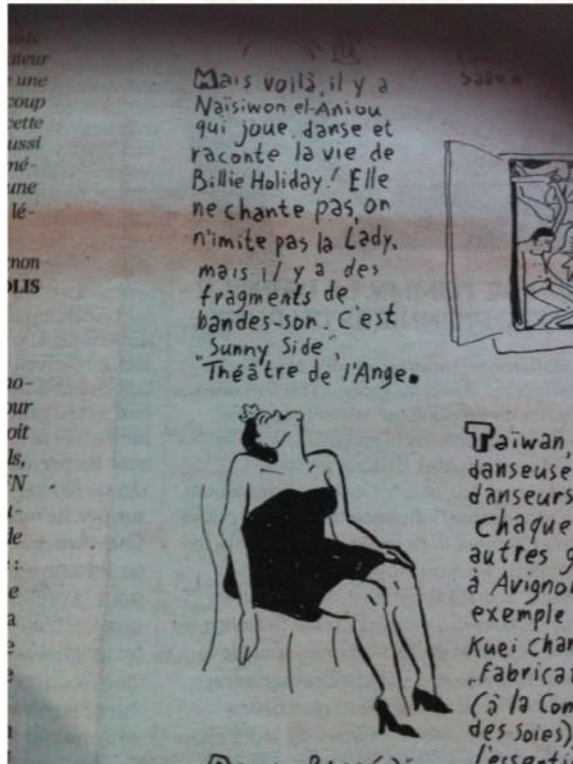 une
coup
cette
ussi
mé-
une
lé-
non
OLIS
no-
our
oit
ls,
FN
u-
de
:
e
a
e
e
Mais voilà, il y a
Naïsiwon el-Aniou
qui joue, danse et
raconte la vie de
Billie Holiday! Elle
ne chante pas, on
n'imite pas la Lady,
mais il y a des
fragments de
bandes-son. C'est
„Sunny Side",
Théâtre de l'Ange.
Taïwan,
danseuse
danseurs
Chaque
autres g
à Avignon
exemple
Kuei Chan
„Fabricat
(à la Con
des Soies),
l'essenti